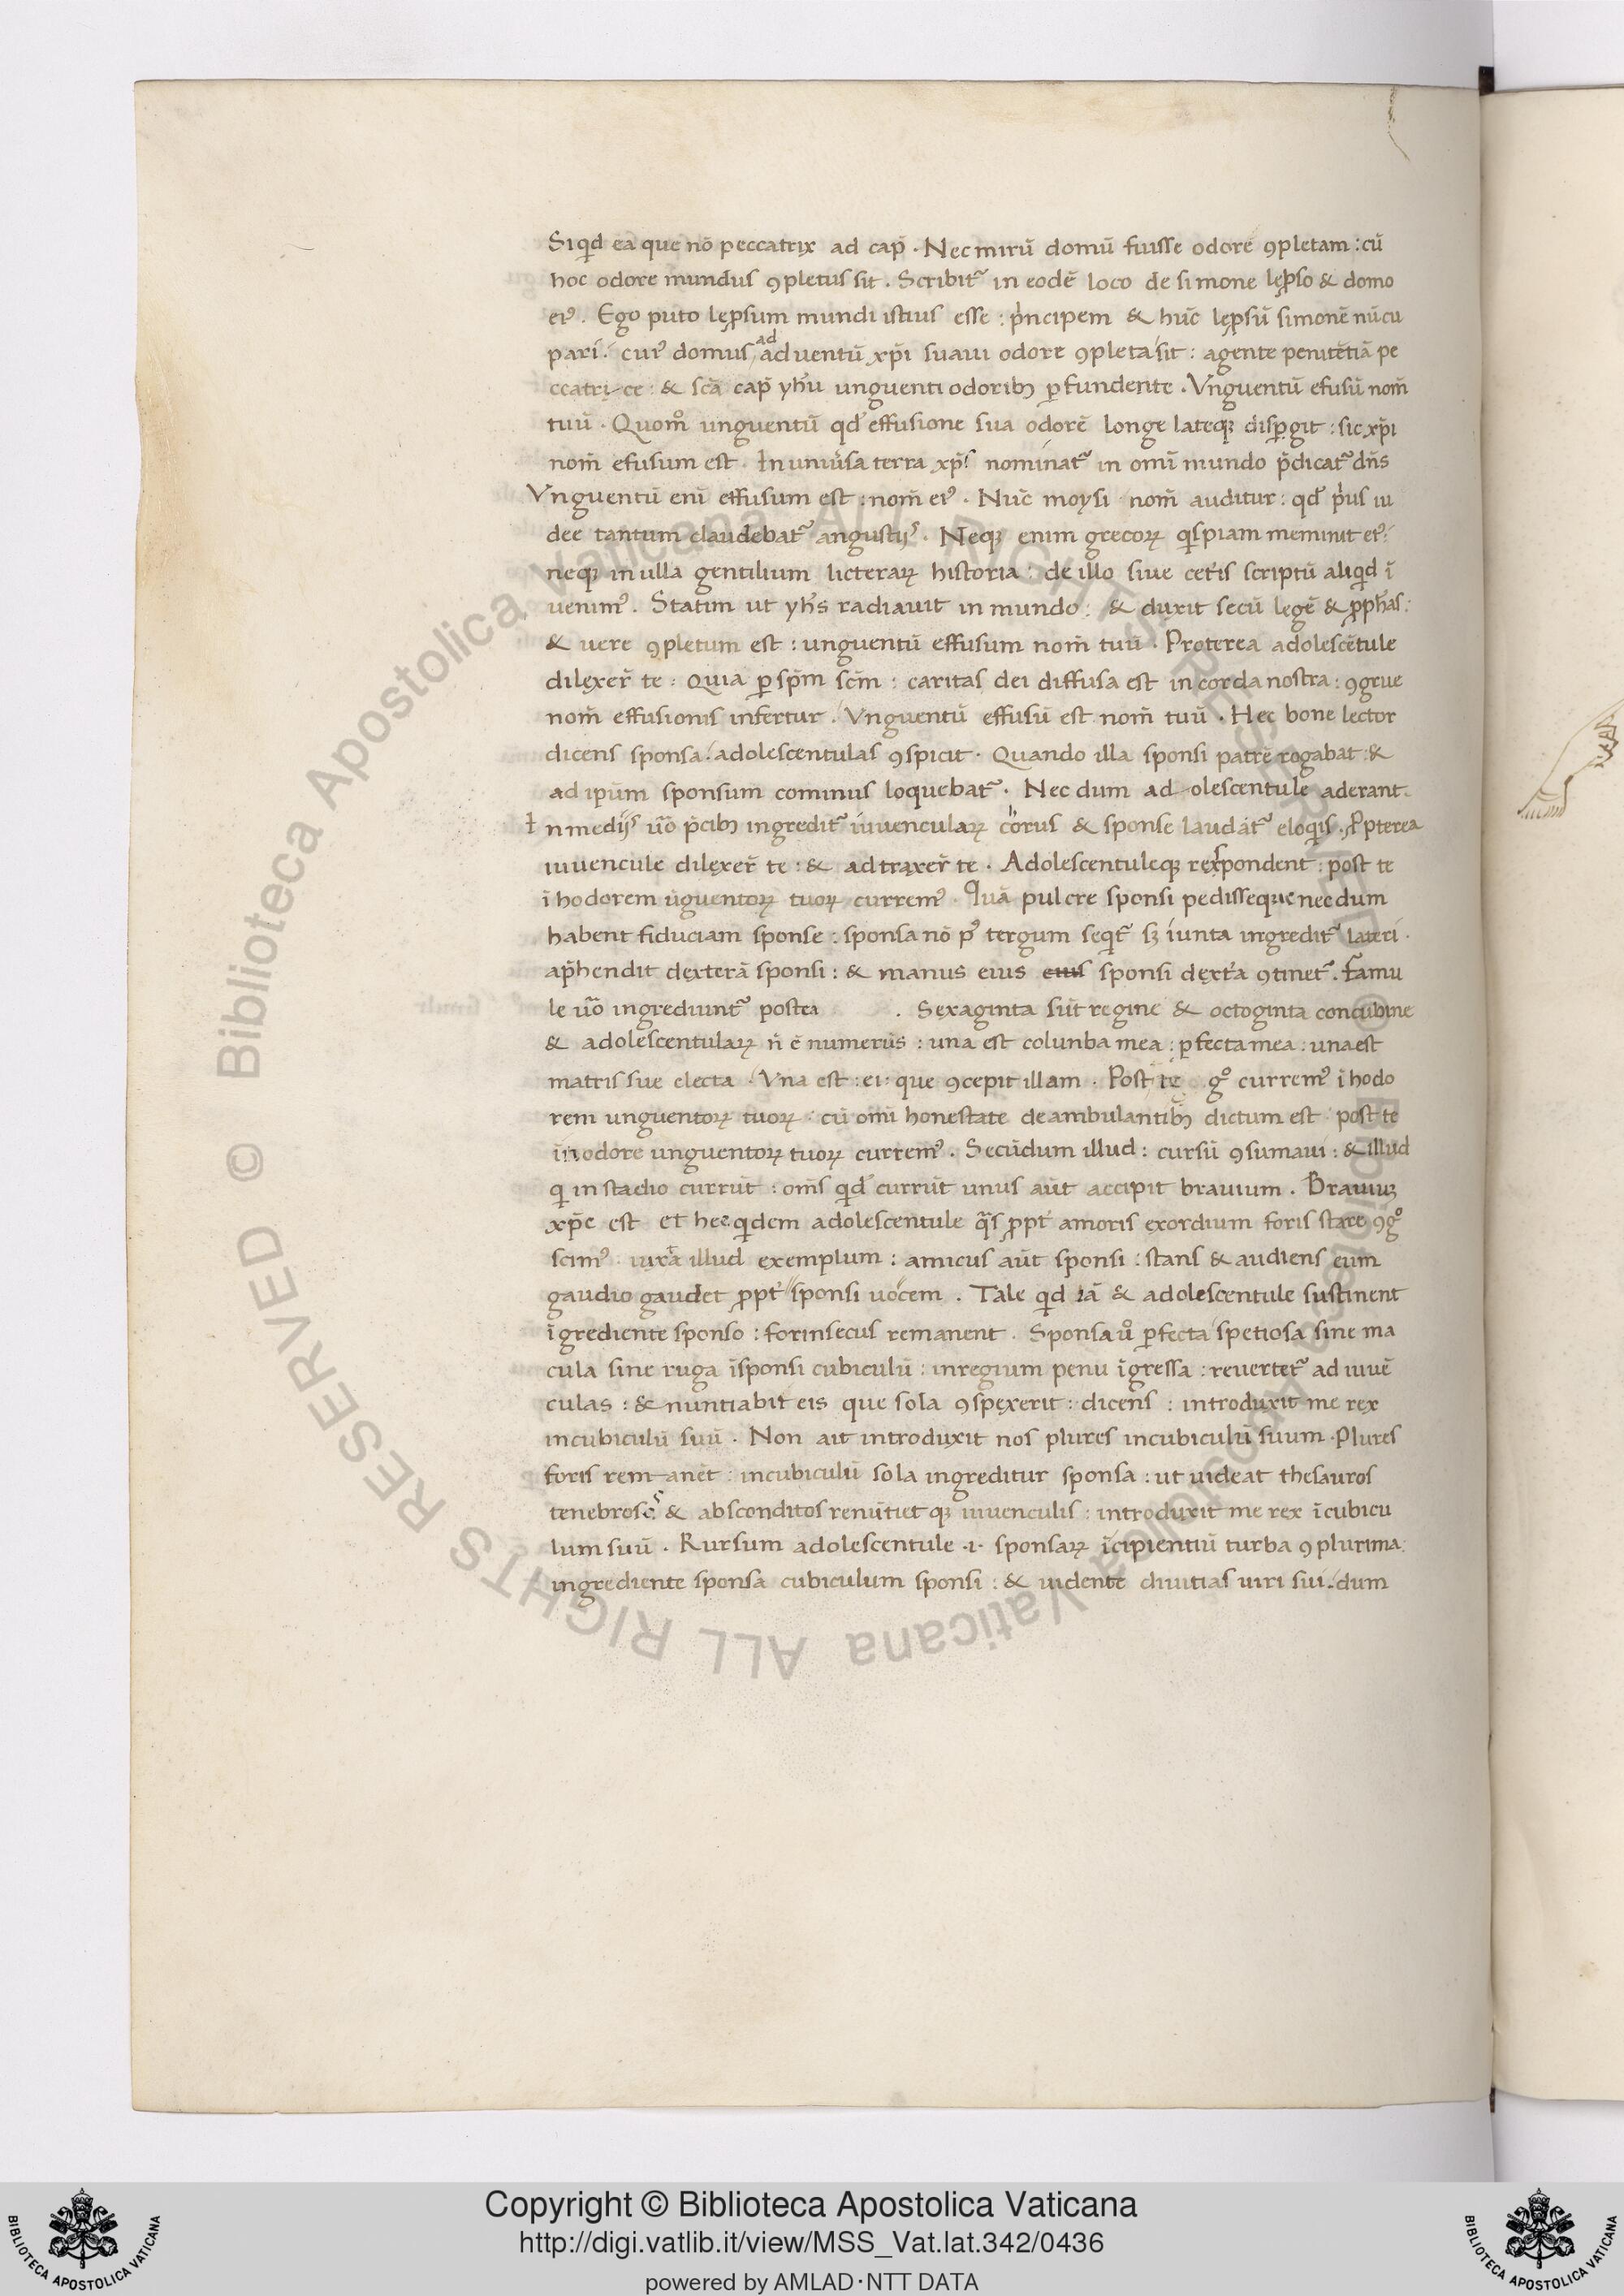 Siqd ea que nō peccatrix ad cap̄ · Nec mirū domū fuisse odore ꝯpletam : cū
hoc odore mundus ꝯpletus sit . Scribit᷑ in eodē loco de simone lep̱so & domo
eiꝰ . Ego puto lep̱sum mundi istius esse : pͥncipem & hūc lep̱sū simonē nūcu
pari . cuiꝰ domus ad aduentū xp̄i suaui odore ꝯpleta sit : agente penitētiā pe
ccatri-ce : & scā cap̄ yhū unguenti odoribꝫ ꝑfundente . Vnguentū efusū nom̄
tuū . Quomͦ unguentū qd̄ effusione sua odorē longe lateqꝫ disꝑgit : sic xp̄i
nom̄ efusum est . In uniuͥsa terra xp̄s nominat᷑ in omī mundo p̄dicat᷑ dn̄s
Vnguentū enī effusum est : nom̄ eiꝰ . Nūc moysi nom̄ auditur : qd̄ pͥus iu
dee tantum claudebat᷑ angustijs . Neqꝫ enim grecoꝝ qͥspiam meminit eiꝰ
neqꝫ in ulla gentilium licteraꝝ historia : de illo siue cetͥis scriptū aliqͥd ī
uenimꝰ . Statim ut yhs̄ radiauit in mundo : & duxit secū legē & ꝓphas̄ :
& uere ꝯpletum est : unguentū effusum nom̄ tuū . Proterea adolescētule
dilexer̄ te : Quia ꝑ sp̄m sc̄m : caritas dei diffusa est in corda nostra : ꝯgrue
nom̄ effusionis infertur . Vnguentū effusū est nom̄ tuū . Hec bone lector
dicens sponsa . adolescentulas ꝯspicit . Quando illa sponsi patrē rogabat : &
ad ipum sponsum cominus loquebat᷑ . Nec dum ad-olescentule aderant .
In medijs ūo p̄cibꝫ ingredit᷑ iuuenculaꝝ chorus & sponse laudāt᷑ eloqͥis . ꝓpterea
iuuencule dilexer̄ te : & adtraxer̄ te . Adolescentuleqꝫ respondent : post te
ī hodorem ūguentoꝝ tuoꝝ curremꝰ . Quā pulcre sponsi pedisseque necdum
habent fiduciam sponse : sponsa nō pꝰ tergum seqͥt᷑ sꝫ iunta ingredit᷑ lateri .
ap̄hendit dexterā sponsi : & manus eius eius sponsi dextͥa ꝯtinet᷑ . Famu
le ūo ingrediunt᷑ postea . Sexaginta sūt regine & octoginta concubine
& adolescentulaꝝ n̄ ē numerus : una est colunba mea : ꝑfecta mea : una est
matris sue electa . Vna est : ei : que ꝯcepit illam . Post te gͦ curremꝰ ī hodo
rem unguentoꝝ tuoꝝ : cū omī honestate deambulantibꝫ dictum est : post te
in odore unguentoꝝ tuoꝝ curremꝰ . Secūdum illud : cursū ꝯsumaui : & illud
qͥ in stadio currūt : om̄s qͥdē currūt unus aūt accipit brauium . Brauiuꝫ
xp̄e est et hec qͥdem adolescentule qͣs ꝓptͥ amoris exordium foris stare ꝯgͦ
scimꝰ iuxta illud exemplum : amicus aūt sponsi : stans & audiens eum
gaudio gaudet ꝓptͥ sponsi uocem . Tale qͥd iā & adolescentule sustinent
īgrediente sponso : forinsecus remanent . Sponsa uͦ ꝑfecta spetiosa sine ma
cula sine ruga īsponsi cubiculū : in regium penu īgressa : reuertet᷑ ad iuuē
culas : & nuntiabit eis que sola ꝯspexerit : dicens : introduxit me rex
in cubiculū suū . Non ait introduxit nos plures in cubiculū suum . Plures
foris remanēt : in cubiculū sola ingreditur sponsa : ut uideat thesauros
tenebrosos & absconditos renūtiet qꝫ iuuenculis : introduxit me rex ī cubicu
lum suū . Rursum adolescentule .i. sponsaꝝ īcipientiū turba ꝯplurima :
ingrediente sponsa cubiculum sponsi : & uidente diuitias uiri sui . dum
Copyright © Biblioteca Apostolica Vaticana
http://digi.vatlib.it/view/MSS_Vat.lat.342/0436
powered by AMLAD·NTT DATA
BIBLIOTECA APOSTOLICA VATICANA
BIBLIOTECA APOSTOLICA VATICANA
© Biblioteca Apostolica Vaticana ALL RIGHTS RESERVED
© Biblioteca Apostolica Vaticana ALL RIGHTS RESERVED